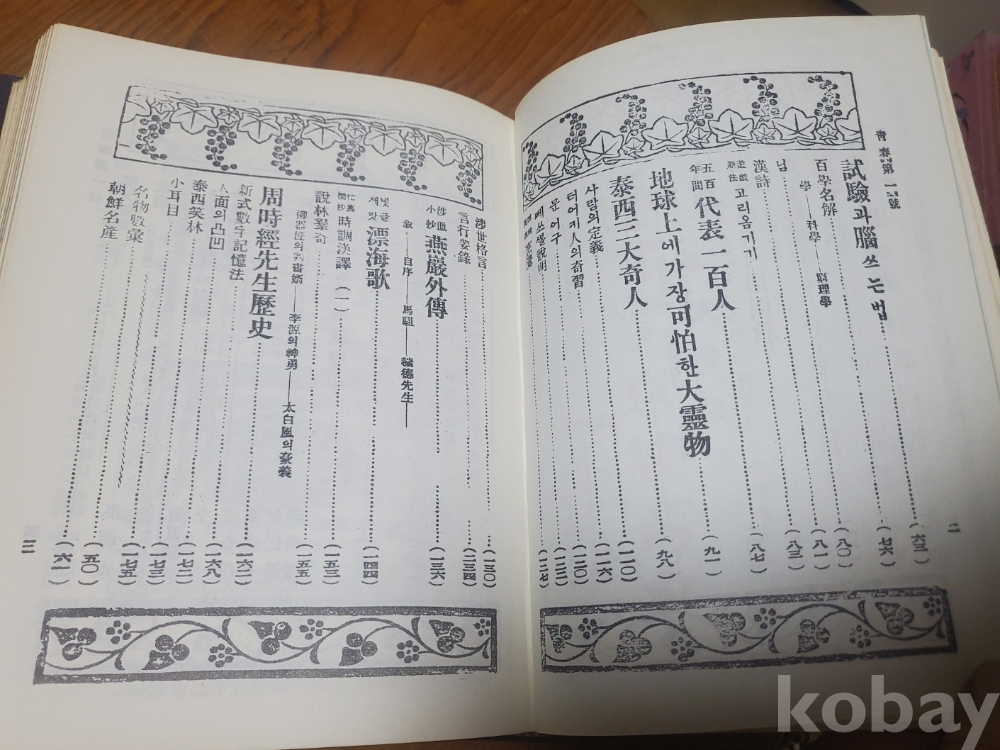 靑春 第一號
試驗과腦쓰는법 (七六)
百學名解 (八〇)
學 — 科學 — 窮理學 (八一)
님 (八三)
漢詩 (八七)
고리옴기기
五百年間 代表一百人 (九一)
地球上에가장可怕한大靈物 (九八)
泰西三大奇人 (一一〇)
사람의定義 (一一六)
奇習 (一二〇)
문어구 (一二一)
(一二七)
二
涉世格言 (一三〇)
言行要錄 (一三四)
燕巖外傳 (一三六)
敍 — 自序 — 馬駔 — 穢德先生 —
漂海歌 (一四四)
時調漢譯(一) (一五三)
說林 (一五五)
李源의神勇 — 太白風의豪義
周時經先生歷史
新式數字記憶法 (一六二)
人面의凸凹 (一六八)
泰西笑林 (一七二)
小耳目 (一七三)
名物彙 (一七五)
朝鮮名產 (五〇)
(六一)
三
kobay